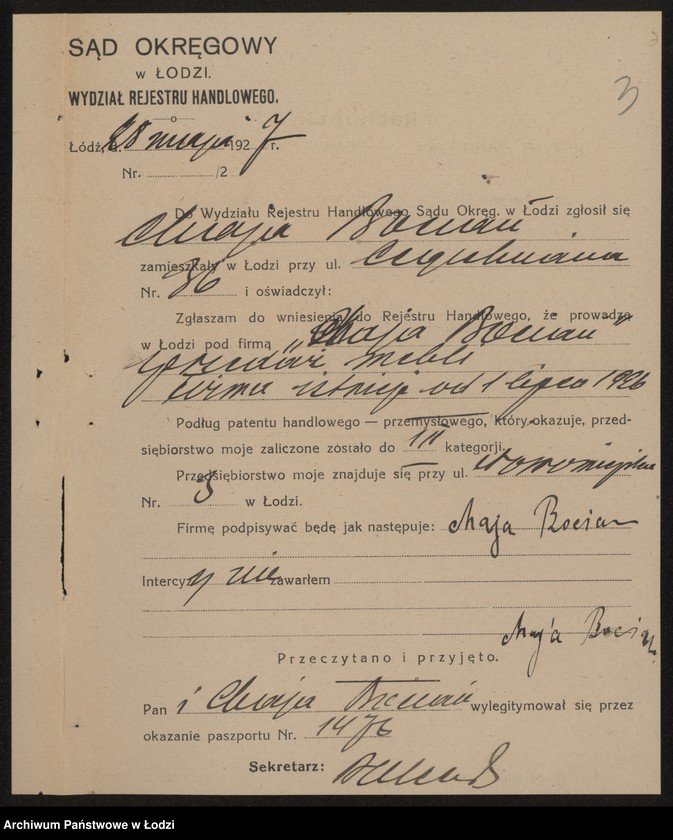 SĄD OKRĘGOWY
w ŁODZI.
WYDZIAŁ REJESTRU HANDLOWEGO.
3
Łódź, d. 28 maja 1927 r.
Nr. /2
Do Wydziału Rejestru Handlowego Sądu Okręg. w Łodzi zgłosił się
Chaja Bocian
zamieszkały w Łodzi przy ul. Cegielniana
Nr. 36 i oświadczył:
Zgłaszam do wniesienia do Rejestru Handlowego, że prowadzę
w Łodzi pod firmą „Chaja Bocian"
sprzedaż mebli
firma istnieje od 1 lipca 1926
Podług patentu handlowego — przemysłowego, który okazuję, przed-
siębiorstwo moje zaliczone zostało do III kategorji.
Przedsiębiorstwo moje znajduje się przy ul. Nowomiejska
Nr. 3 w Łodzi.
Firmę podpisywać będę jak następuje: Chaja Bocian
Intercyzy nie zawarłem
Chaja Bocian
Przeczytano i przyjęto.
Pani Chaja Bocian wylegitymował się przez
okazanie paszportu Nr. 1476
Sekretarz:
Archiwum Państwowe w Łodzi